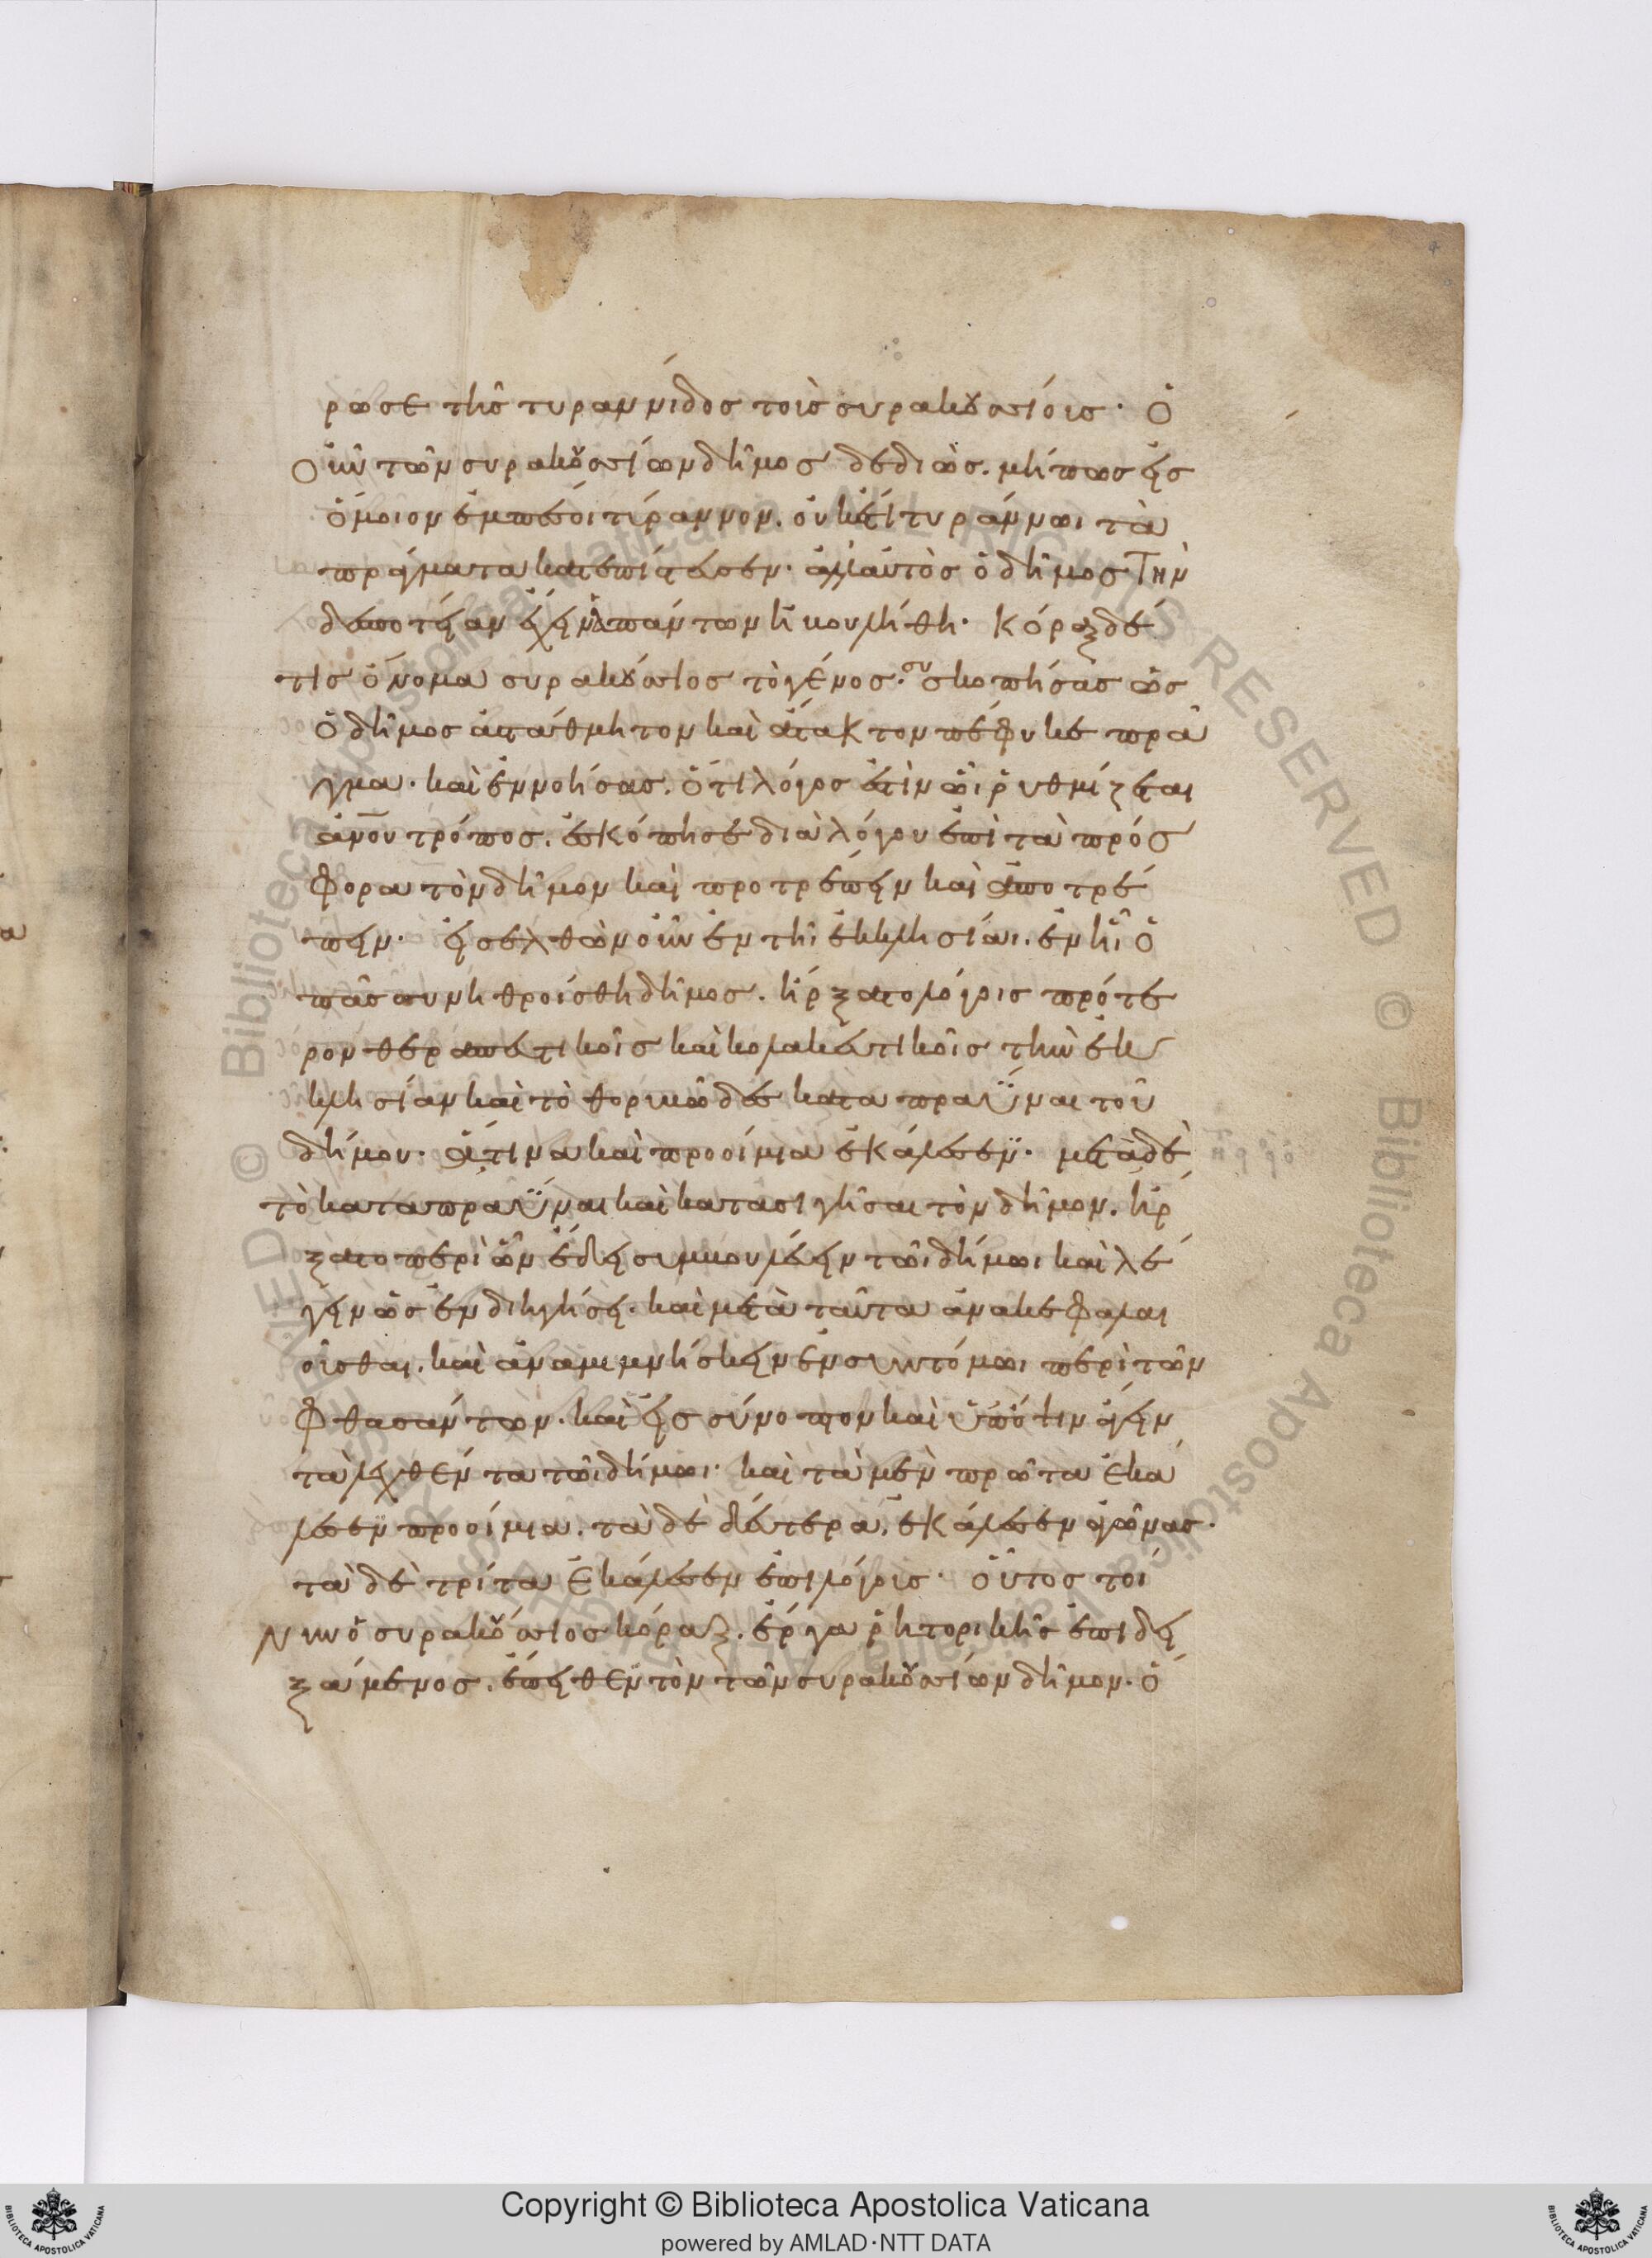 ρωσε τῆς τυραννίδος τοὶς συρακουσίοις· ὁ
οὖν τῶν συρακουσίων δῆμος δεδιὼς. μήπως εἰς
ὅμοιον ἐμπέσοι τύραννον. οὐκέτι τυράννωι τὰ
πράγματα κατεπίστευσεν· ἀλλ' αὐτὸς ὁ δῆμος τὴν
δεσποτείαν ἔχειν ἁπάντων ἠβουλήθη· κόραξ δέ
τις ὄνομα συρακούσιος τὸ γένος· συσκοπήσας ὡς
ὁ δῆμος ἀστάθμητον καὶ ἄτακτον πέφυκε πρᾶ
γμα· καὶ ἐννοήσας. ὅτι λόγος ἐστὶν ὧι ῥυθμίζεται
ἀν̅ου τρόπος. ἐσκόπησε διὰ λόγου ἐπὶ τὰ πρόσ
φορα τὸν δῆμον καὶ προτρέπειν καὶ ἀποτρέ
πειν· εἰσελθὼν οὖν ἐν τῆι ἐκκλησίαι. ἐν ἧι ὁ
πᾶς συνηθροίσθη δῆμος. ἤρξατο λόγοις πρότε
ρον θεραπευτικοῖς καὶ κολακευτικοῖς τὴν ἐκ
κλησίαν καὶ τὸ θορυβῶδες καταπραΰναι τοῦ
δήμου· ἅτινα καὶ προοίμια ἐκάλεσεν· μετὰ δὲ
τὸ καταπραΰναι καὶ κατασιγῆσαι τὸν δῆμον. ἤρ
ξατο περὶ ὧν ἔδει συμβουλεύειν τῶι δήμωι καὶ λέ
γειν ὡς ἐν διηγήσει· καὶ μετὰ ταῦτα ἀνακεφαλαι
οῦσθαι. καὶ ἀναμιμνήσκειν ἐν συντόμωι περὶ τῶν
φθασάντων. καὶ εἰς σύνοπτον καὶ ὑπόψιν ἄγειν
τὰ λεχθέντα τῶι δήμωι· καὶ τὰ μὲν πρῶτα ἐκά
λεσεν προοίμια. τὰ δὲ δεύτερα. ἐκάλεσεν ἀγῶνας·
τὰ δὲ τρίτα ἐκάλεσεν ἐπιλόγοις· οὗτος τοί
νυν ὁ συρακούσιος κόραξ. ἔργα ῥητορικῆς ἐπιδει
ξάμενος. ἔπειθεν τὸν τῶν συρακουσίων δῆμον. ὁ
Copyright © Biblioteca Apostolica Vaticana
powered by AMLAD·NTT DATA